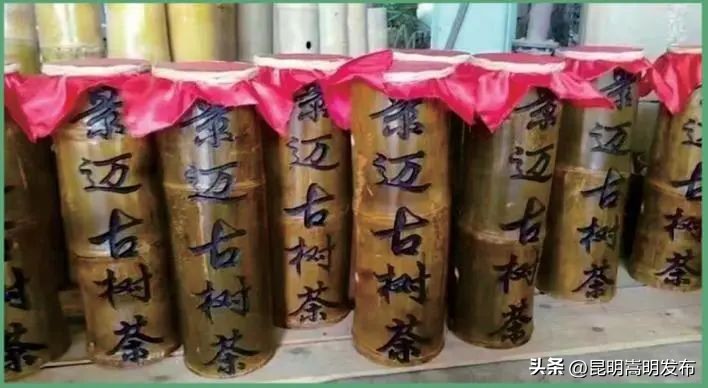 茶
景迈古树茶
景迈古树茶
景迈古树茶
景迈古树茶
景迈古树茶
景迈古树茶
迈古树茶
头条 @昆明嵩明发布